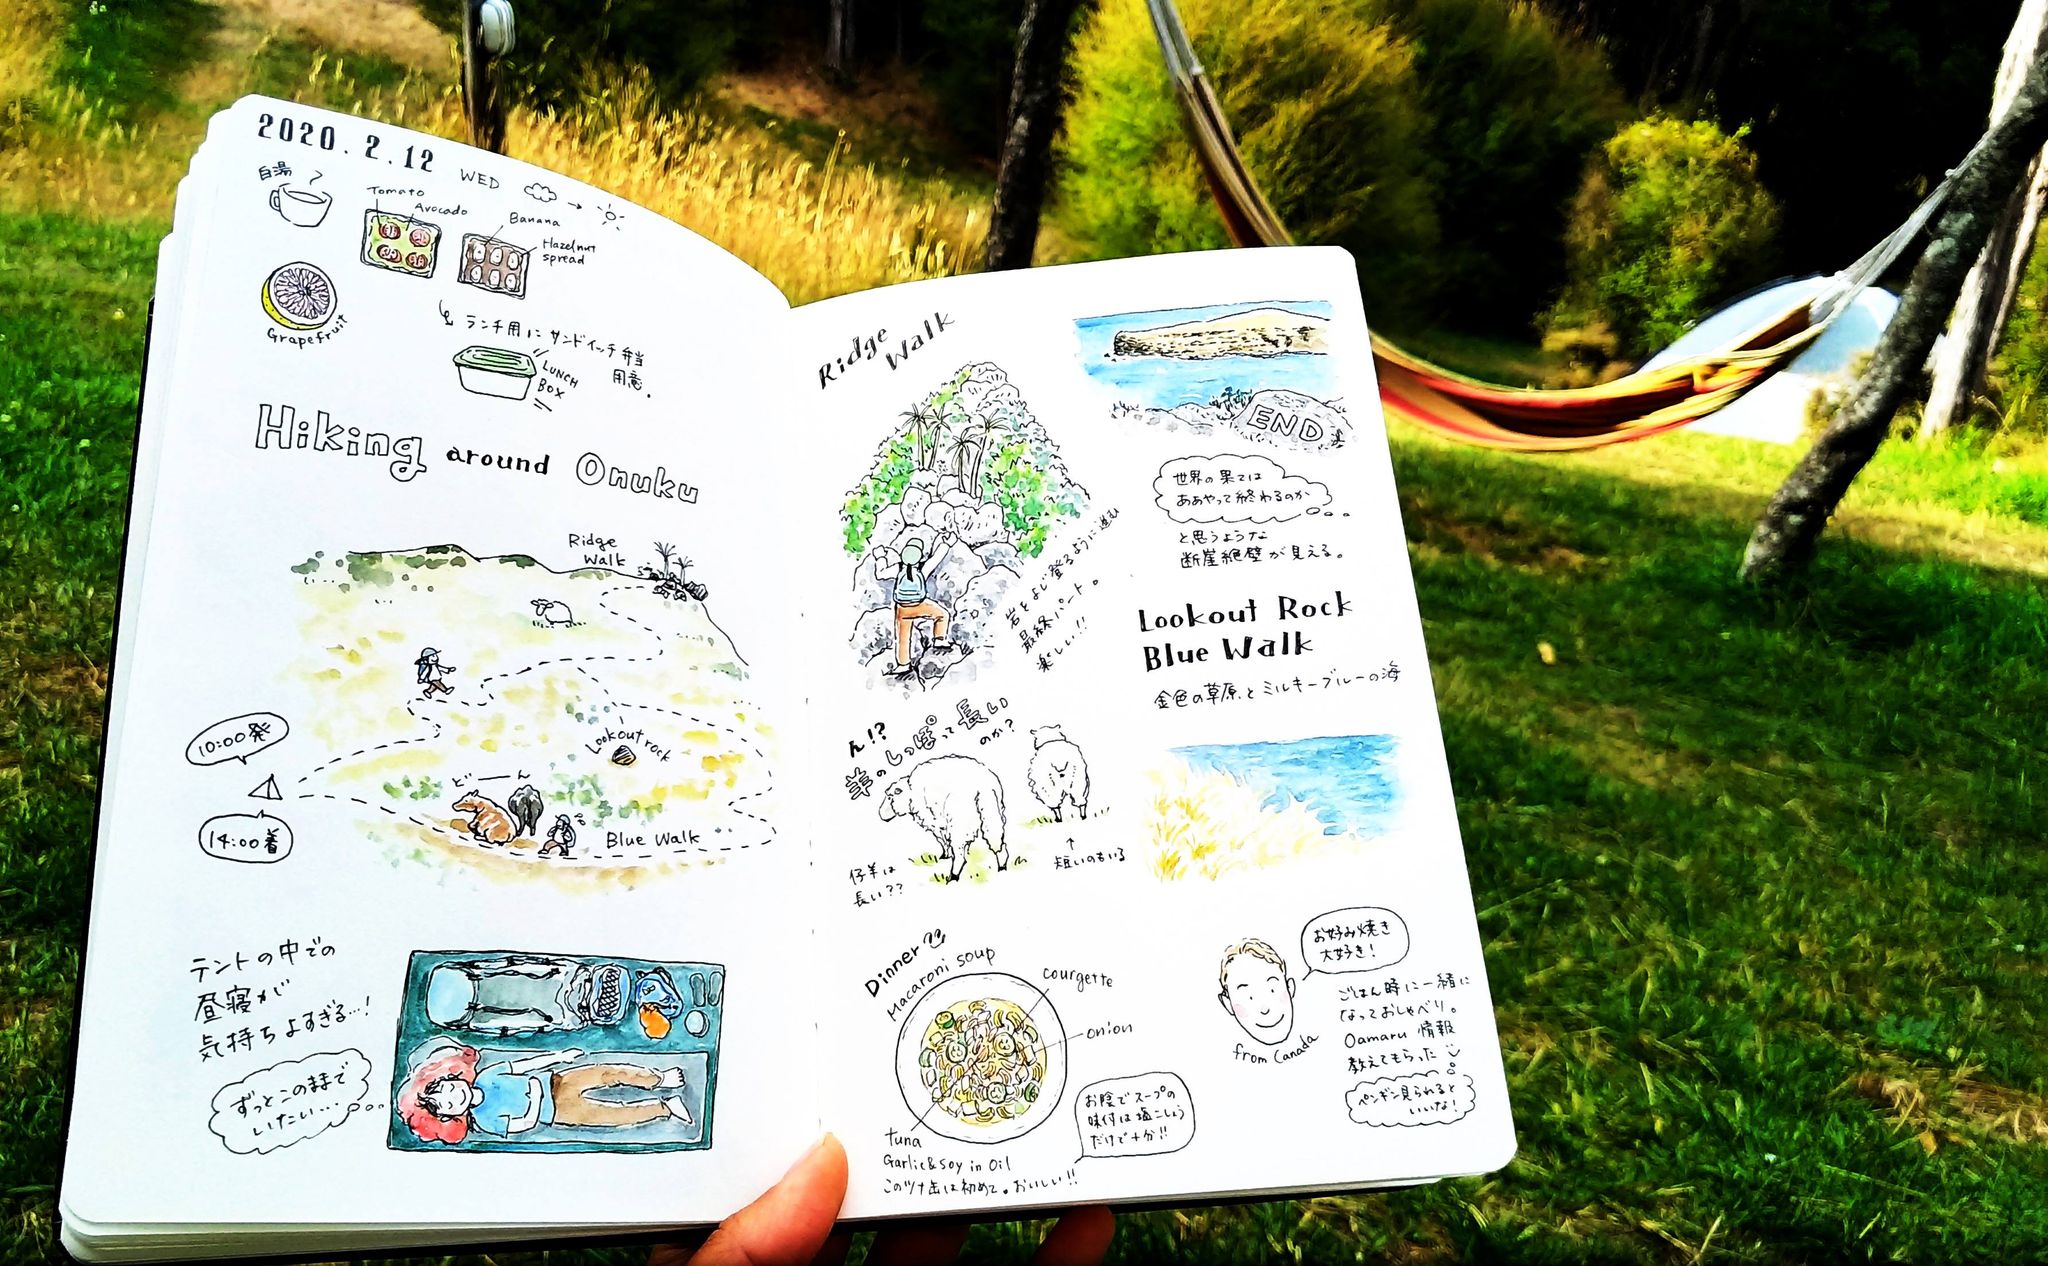 2020.2.12 WED
白湯
Tomato
Avocado
Banana
Hazelnut
spread
Grapefruit
ランチ用にサンドイッチ弁当
用意.
LUNCH
BOX
Hiking around Onuku
Ridge
Walk
10:00発
Lookout rock
どーーん
14:00着
Blue Walk
テントの中での
昼寝が
気持ちよすぎる…!
ずっとこのままで
いたい…
Ridge
Walk
END
世界の果ては
ああやって終わるのか
と思うような
断崖絶壁が見える。
岩をよじ登るように進む
最終パート。
楽しい!!
Lookout Rock
Blue Walk
金色の草原とミルキーブルーの海
ん!?
羊のしっぽって長い
のか?
仔羊は
長い??
↑
短いのもいる
Dinner
Macaroni soup
courgette
onion
tuna
Garlic&Soy in Oil
このツナ缶は初めて。おいしい!!
お陰でスープの
味付は塩こしょう
だけで十分!!
お好み焼き
大好き!
from Canada
ごはん時に一緒に
なっておしゃべり。
Oamaru 情報
教えてもらった
ペンギン見られると
いいな!